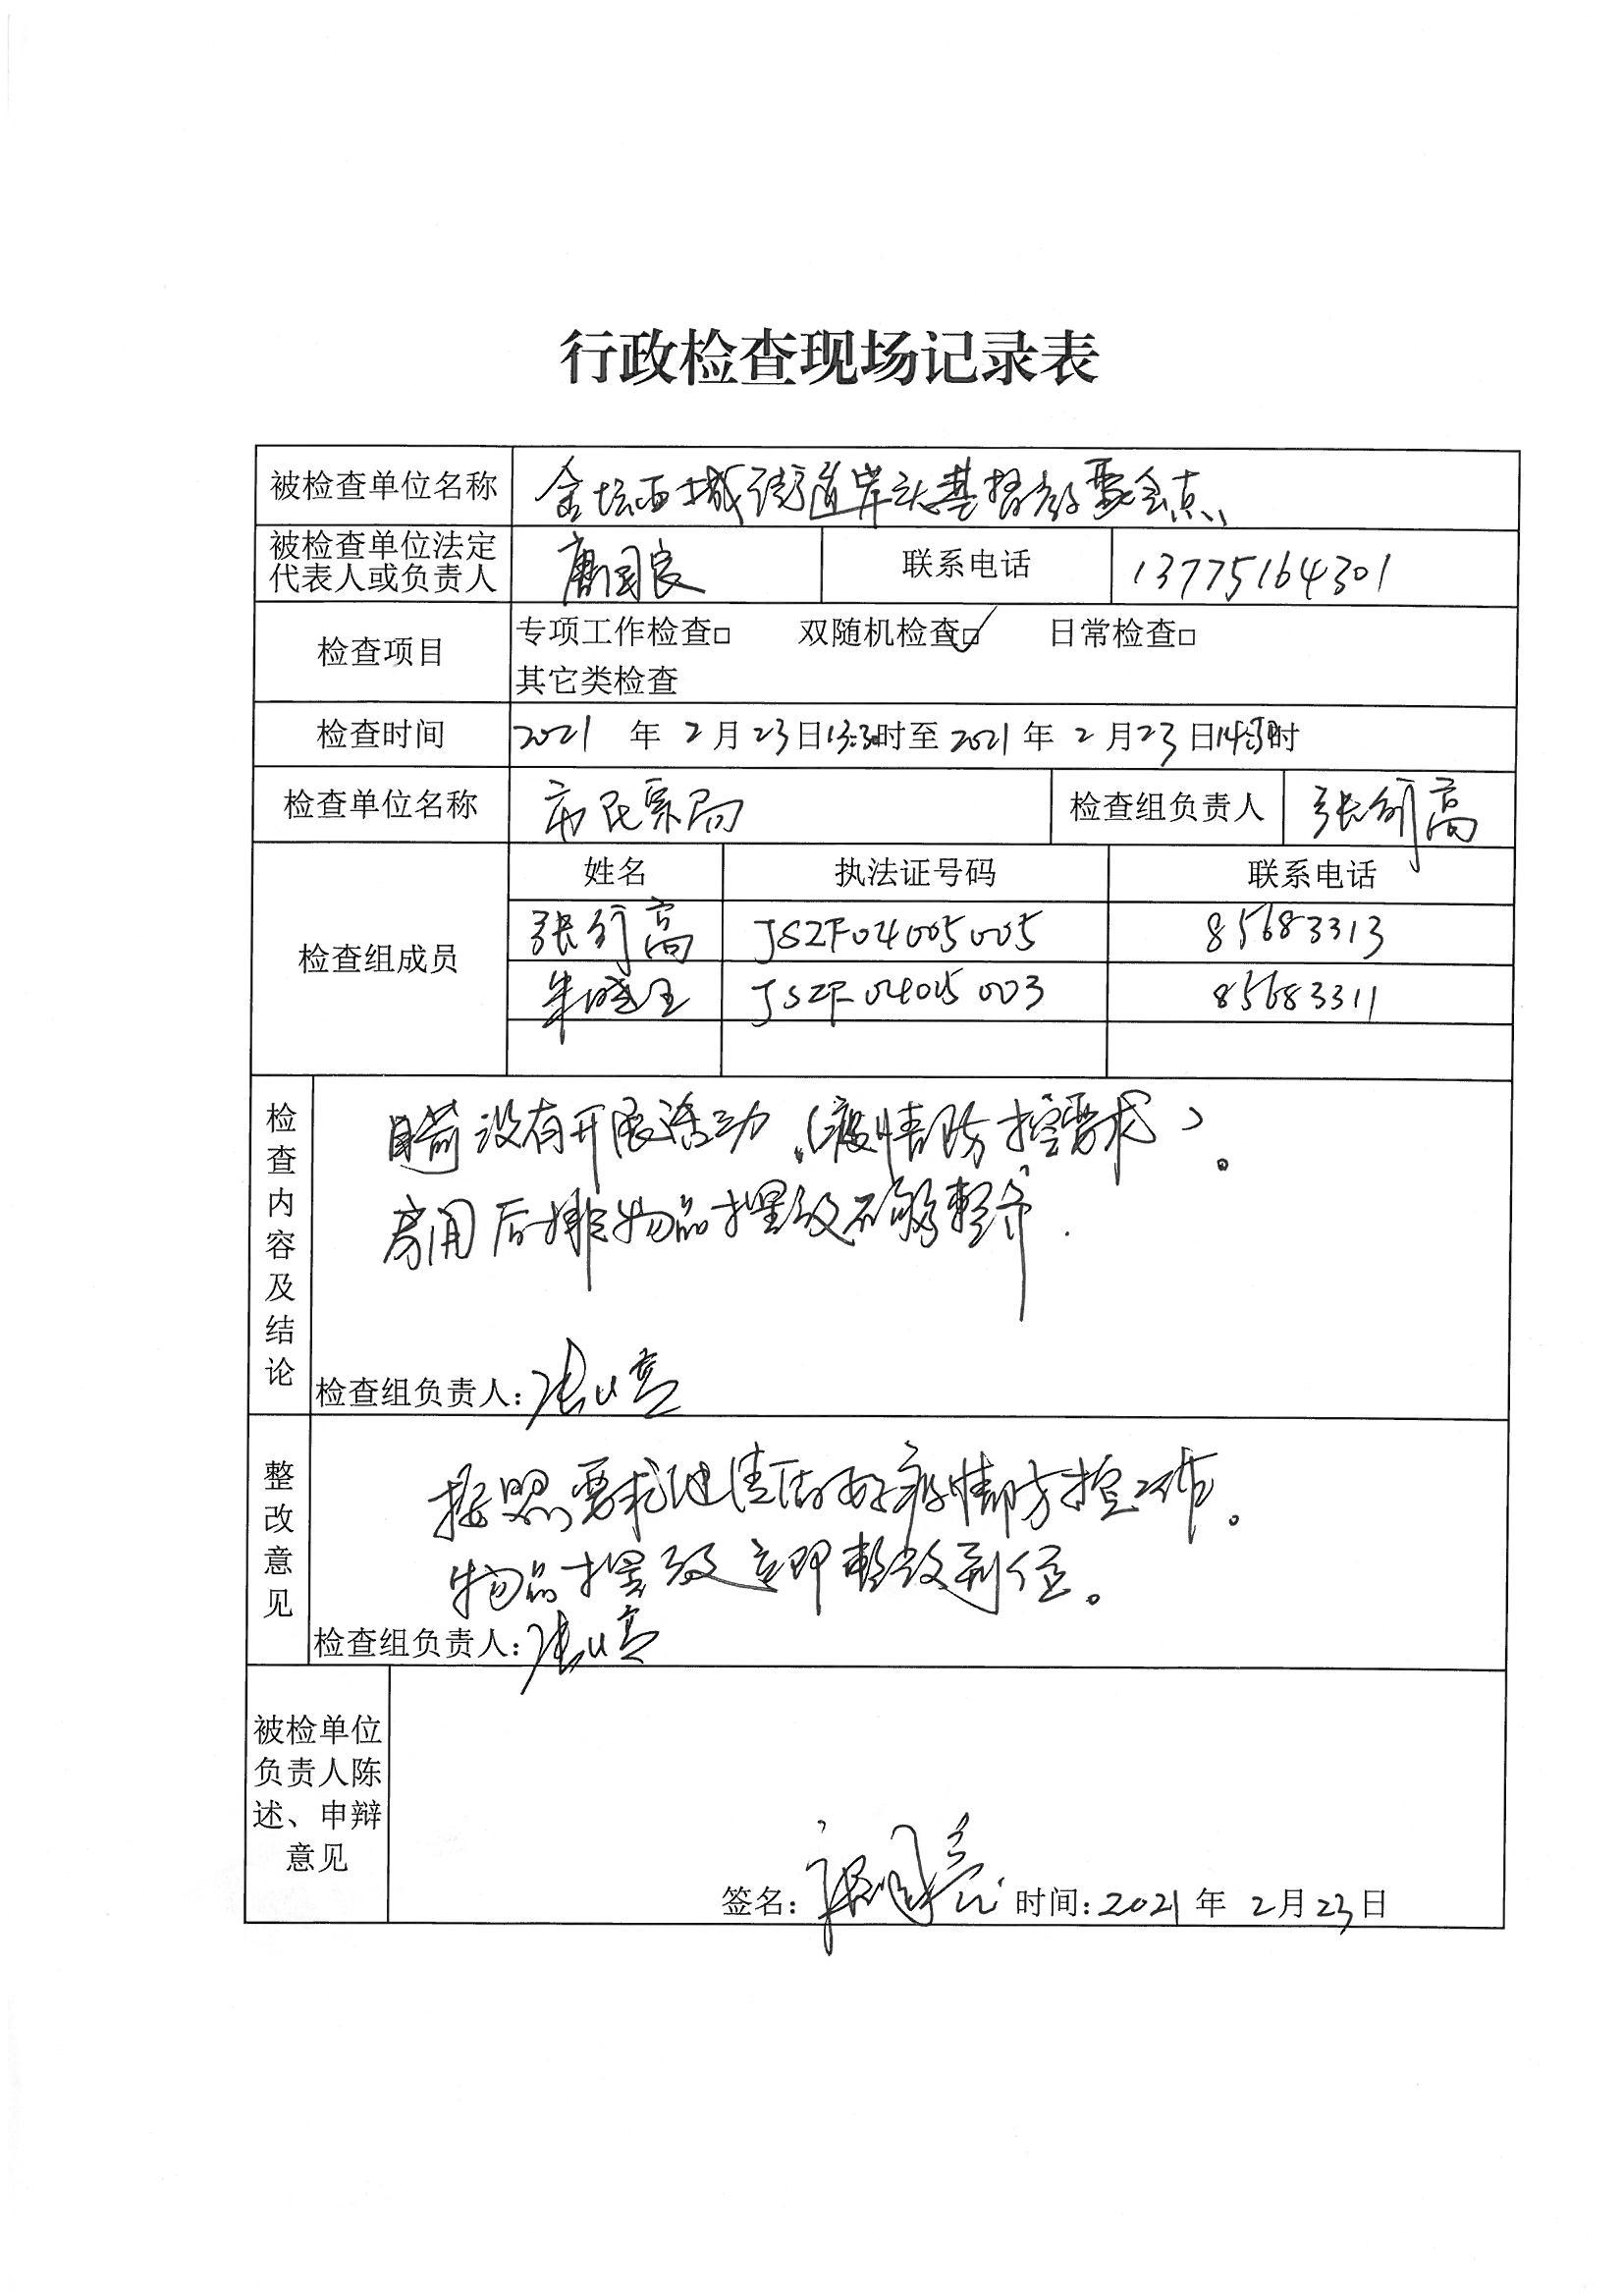 行政检查现场记录表
被检查单位名称 金坛西城街道岸头基督教聚会点
被检查单位法定
代表人或负责人 唐国良 联系电话 13775164301
检查项目 专项工作检查□ 双随机检查☑ 日常检查□
其它类检查
检查时间 2021 年 2 月 23 日 13:30 时至 2021 年 2 月 23 日 时
检查单位名称 市民宗局 检查组负责人 张 高
检查组成员 姓名 执法证号码 联系电话
张 高 JSZF04005005 85683313
朱 JSZF04005003 85683311
检查内容及结论
目前没有开展活动（疫情防控要求）。
房间后排物品摆放不够整齐.
检查组负责人：
整改意见
按照要求继续做好疫情防控工作。
物品摆放立即整改到位。
检查组负责人：
被检单位
负责人陈
述、申辩
意见
签名： 时间：2021 年 2 月 23 日